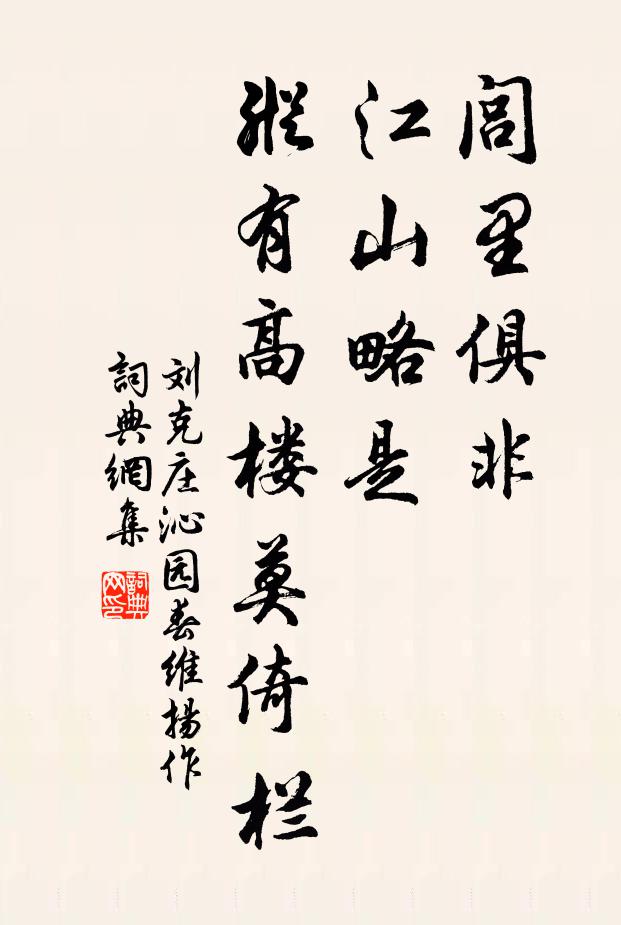 闾里俱非
江山略是
纵有高楼莫倚栏
刘克庄沁园春维扬作
詞典網集
詞典网印